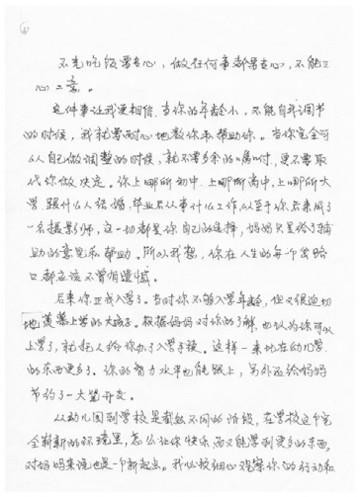 不光吃饭要专心，做任何事都要专心，不能三
心二意。
这件事让我更相信，当你的年龄小，不能自我调节
的时候，我就要耐心地教你和帮助你。当你完全可
以自己做调整的时候，就不要多余的嘱咐，更不要取
代你做决定。你上哪所初中、上哪所高中、上哪所大
学、跟什么人结婚、毕业后从事什么工作，以至于你后来成了
一名摄影师，这一切都是你自己的选择，妈妈只是给了辅
助的意见和帮助。所以我想，你在人生的每一个岔路
口都应该不曾有遗憾。
后来你正式入学了。当时你不够入学年龄，但又很迫切
地羡慕上学的大孩子。根据妈妈对你的了解，也认为你可以
上学了，就托人给你办了入学手续。这样一来比在幼儿园学
的东西更多了，你的智力水平也能跟上，另外还给妈妈
节约了一大笔开支。
从幼儿园到学校是截然不同的阶段，在学校这个完
全崭新的环境里，怎么让你快乐而又能学到更多的东西，
对妈妈来说也是一个新起点。我必须细心观察你的行动和